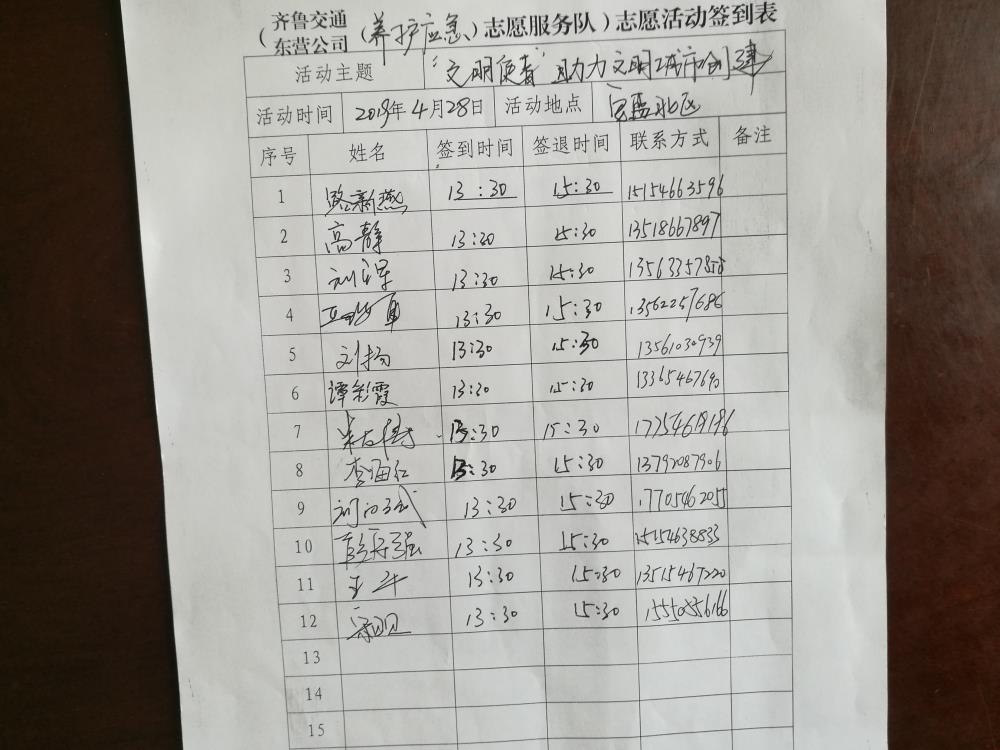 （齐鲁交通东营公司（养护应急）志愿服务队）志愿活动签到表
活动主题 “文明使者”助力文明城市创建
活动时间 2019年4月28日 活动地点 北区
序号 姓名 签到时间 签退时间 联系方式 备注
1 骆新燕 13:30 15:30 15154663596
2 高静 13:30 15:30 13518667897
3 刘军 13:30 15:30 13563357858
4 13:30 15:30 13562257686
5 刘扬 13:30 15:30 13561030939
6 谭彩霞 13:30 15:30 13365467690
7 13:30 15:30 17754619196
8 李海红 13:30 15:30 13792087906
9 13:30 15:30 17705462055
10 13:30 15:30 15154638833
11 王斗 13:30 15:30 13515467220
12 13:30 15:30 15550556166
13
14
15